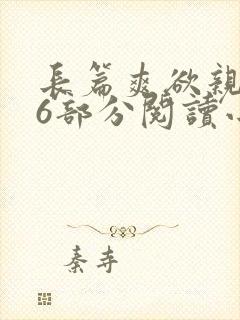 長篇爽欲親
6部分閱讀
秦寺